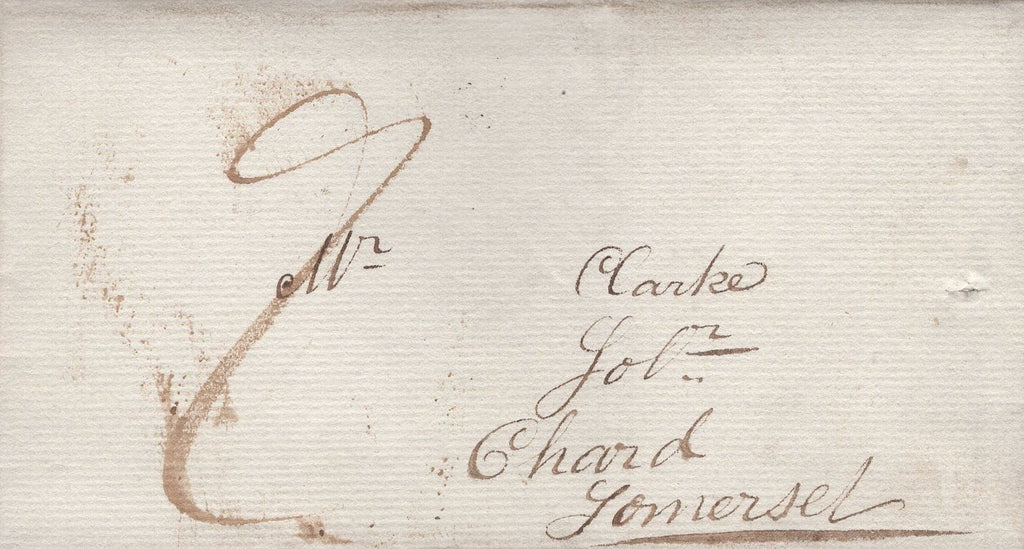 Mr Clarke
Solr
Chard
Somerset